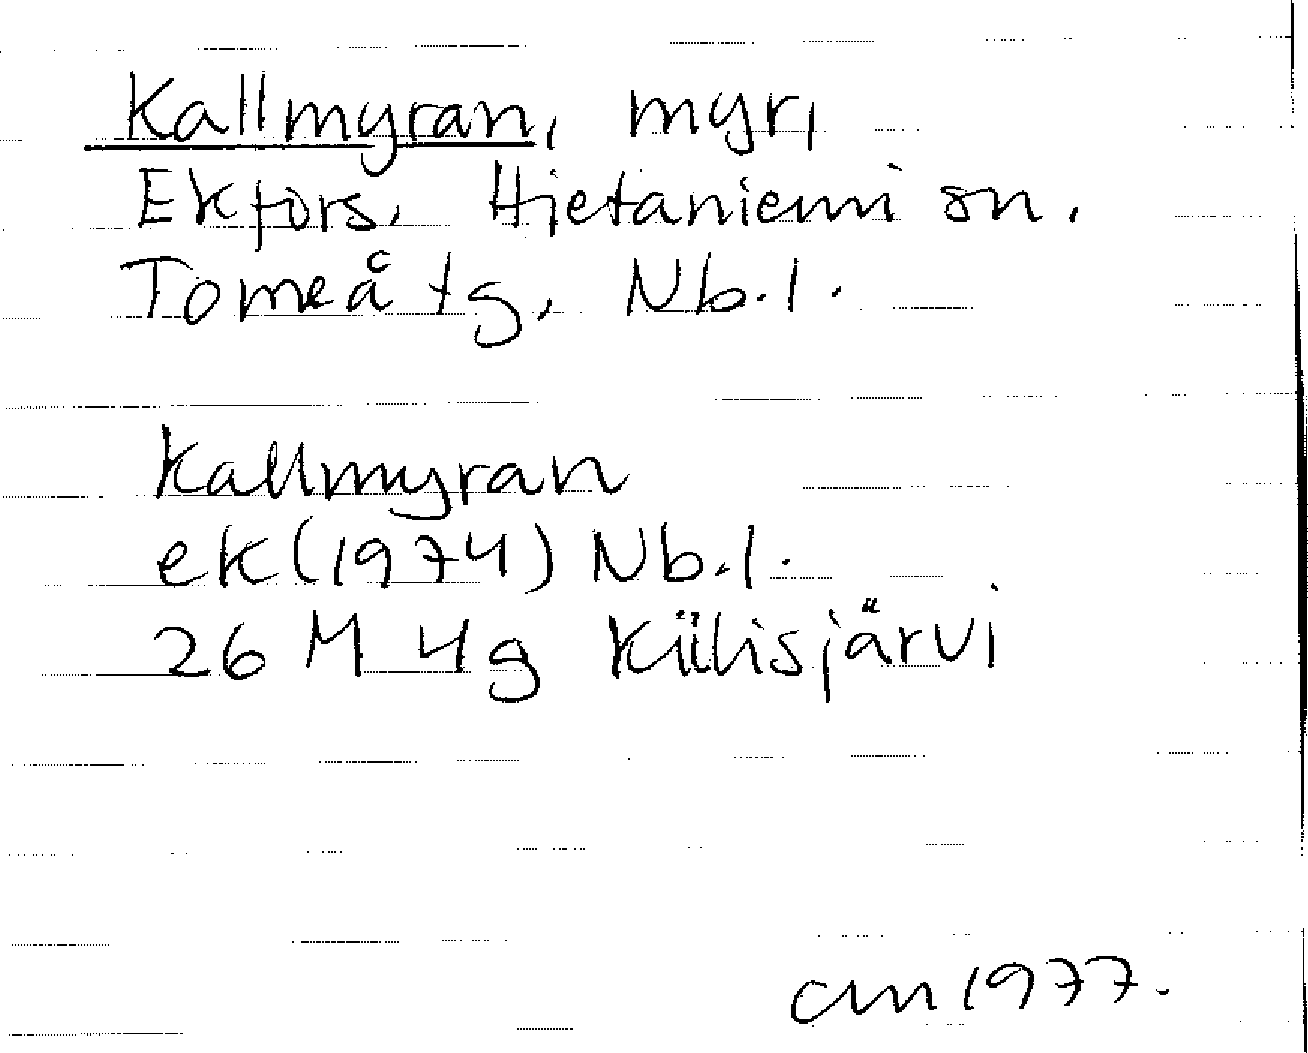 Kallmyran, myr,
Ekfors, Hietaniemi sn.
Torneå tg, Nb.l.
Kallmyran
ek(1974) Nb.l.
26 M 4g Kiilisjärvi
cm 1977.